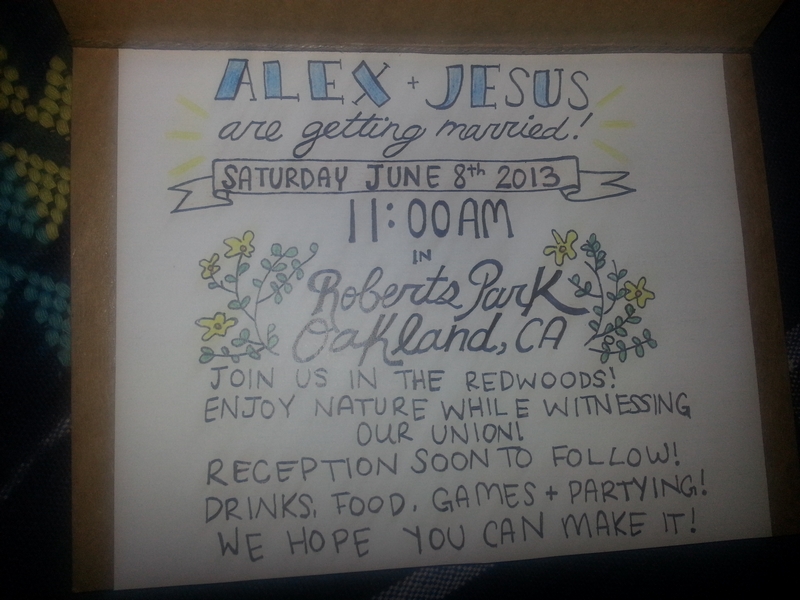 ALEX + JESUS
are getting married!
SATURDAY JUNE 8th 2013
11:00AM
IN
Roberts Park
Oakland, CA
JOIN US IN THE REDWOODS!
ENJOY NATURE WHILE WITNESSING
OUR UNION!
RECEPTION SOON TO FOLLOW!
DRINKS, FOOD, GAMES + PARTYING!
WE HOPE YOU CAN MAKE IT!